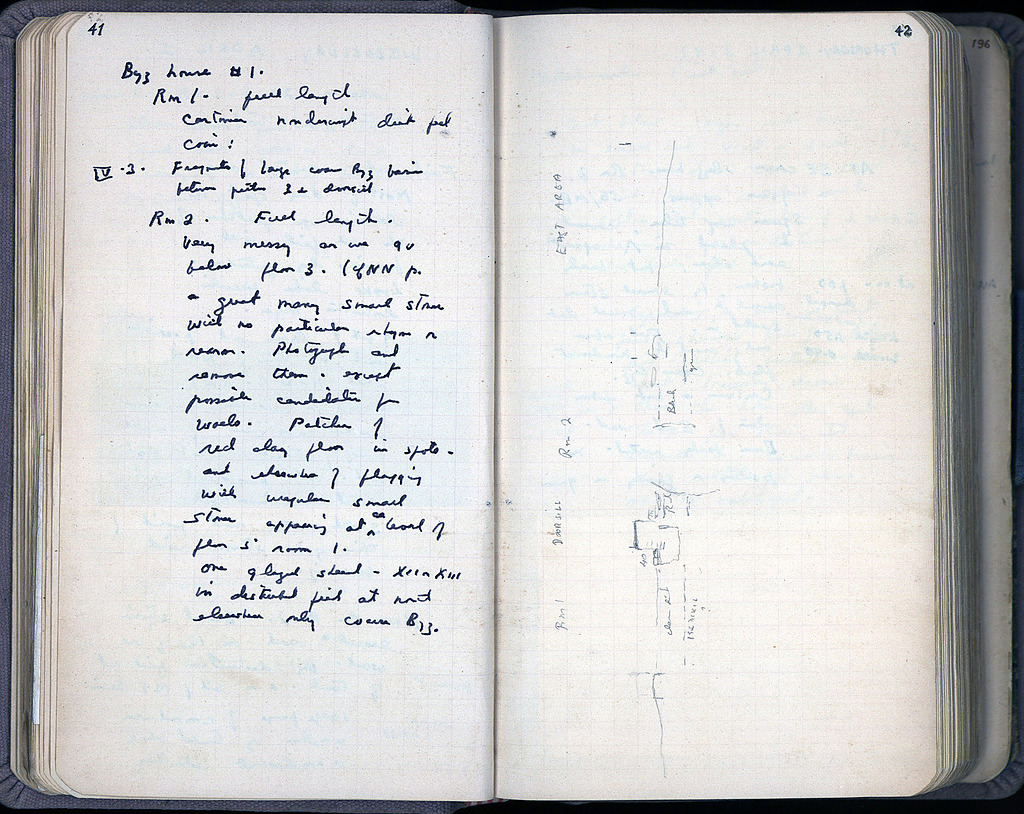 41
Byz house #1.
Rm 1. full length
continue nondescript dark fill
coin:
IV-3. Fragments of large coarse Byz basin
between pithos 3 & doorsill
Rm 2. Full length.
Very messy as we go
below floor 3. (cf NN p.
a great many small stones
with no particular rhyme or
reason. Photograph and
remove them. except
possible candidates for
walls. Patches of
red clay floor in spots.
and elsewhere of flagging
with irregular small
stones appearing at ca level of
floor 5 room 1.
one glazed sherd - XII or XIII
in disturbed fill at north
elsewhere only coarse Byz.
42
EAST AREA
Rm 2
DOORSILL
Rm 1
40
Black
196